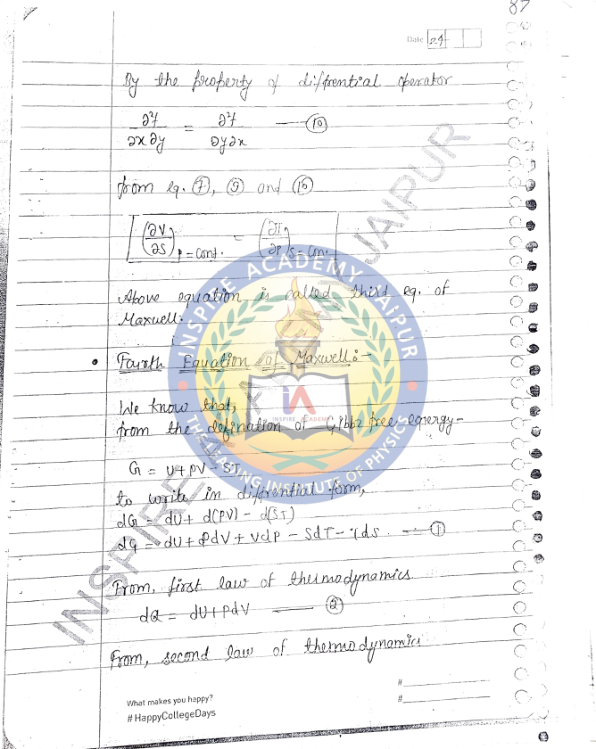 87
Date 24
By the property of diffrential operator
∂²f/∂x∂y = ∂²f/∂y∂x —— (10)
from eq. (7), (9) and (10)
(∂V/∂S)P=Cont. = (∂T/∂P)S=Con.
Above equation is called third eq. of
Maxwell.
• Fourth Equation of Maxwell:-
We know that,
from the defination of Gibbz free energy-
G = U+PV-ST
to write in diffrential form,
dG = dU+ d(PV) - d(ST)
dG = dU+PdV+VdP-SdT-TdS. —— (1)
From, first law of thermodynamics.
dQ = dU+PdV —— (2)
From, second law of thermodynamics
#
What makes you happy?
#
# HappyCollegeDays
INSPIRE ACADEMY JAIPUR
iA
INSPIRE ACADEMY
INSTITUTE OF PHYSICS
INSPIRE
JAIPUR